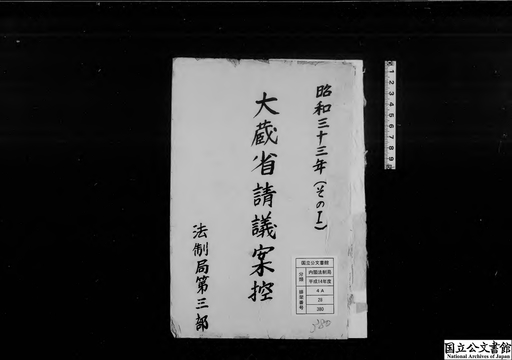 昭和三十三年(そのI)
大蔵省請議案控
法制局第三部
国立公文書館
分類
内閣法制局
平成14年度
排架番号
4A
28
380
380
1 2 3 4 5 6 7 8 9
国立公文書館
National Archives of Japan